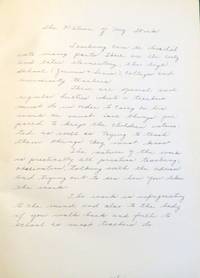 The Nature of My Work
Teaching can be divided
into many parts. There are the early
and later elementary, the high
school (Junior + Senior), college and
university teachers.
There are special and
regular duties which a teacher
must do in order to carry on her
work. She must have things pre-
pared to keep the children interes-
ted as well as trying to teach
them things they must know.
The nature of the work
is practically all practice teaching,
observation, talking with the children
and trying out to see how you like
the work.
The work is invigorating
to the mind, and also to the body
if you walk back and forth to
school as most teachers do.